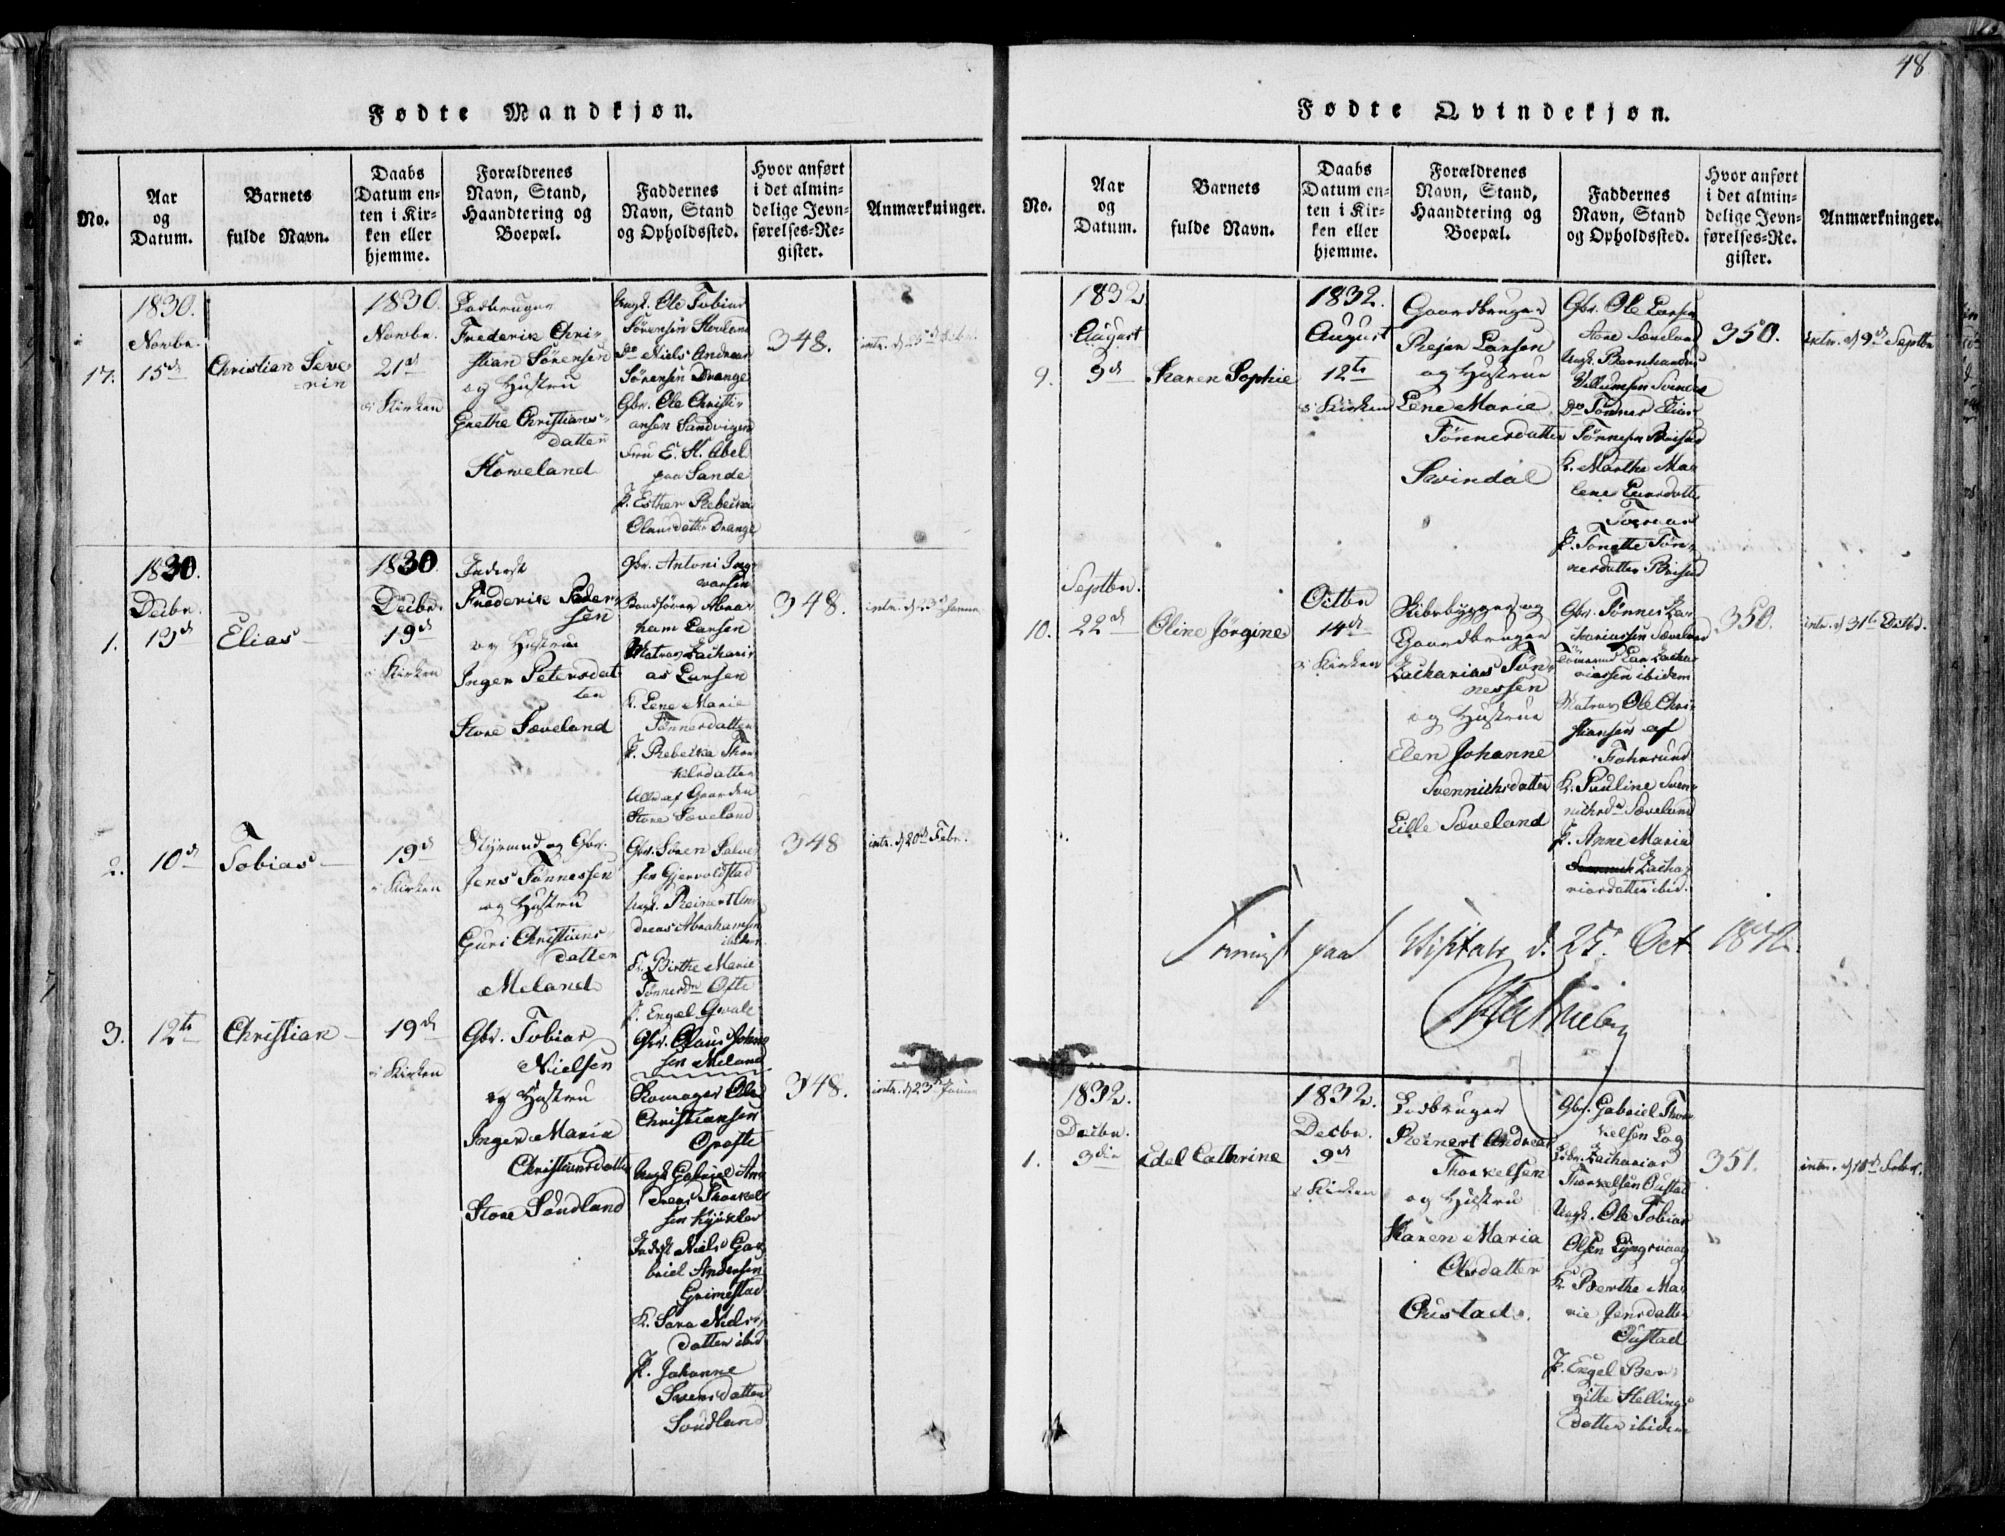 48
Fødte Mandkjøn.
No.
Aar
og
Datum.
Barnets
fulde Navn.
Daabs
Datum en-
ten i Kir-
ken eller
hjemme.
Forældrenes
Navn, Stand,
Haandtering og
Boepæl.
Faddernes
Navn, Stand
og Opholdssted.
Hvor anført
i det almin-
delige Jevn-
førelses-Re-
gister.
Anmærkninger.
17.
1830.
Novbr.
15d
Christian Seve
rin
1830.
Novbr.
21d
i Kirken
Frederik Chri-
stian Sørensen
og Hustru
Grethe Christians-
datter
Skoveland
Ungk. Ole Tobias
Sørensen Skoveland
Do Niels Andreas
Sørensen Drange
Gbr. Ole Christi-
ansen Sandvigen
Fru E. K. Abel
paa Sande
P. Esther Rebecka
Olausdatter Drange
348.
1.
1830.
Decbr.
13d
Elias
1830.
Decbr.
19d
i Kirken
Inderst
Frederik Peder-
sen
og Hustrue
Inger Petersdat-
ter
Store Sæveland
Gbr. Antoni Ing-
varsen
Abra-
ham Larsen
Matros Zachari-
as Larsen
K. Lene Marie
Tønnesdatter
P. Rebecka Thor-
kelsdatter
Alle af Gaarden
Store Sæveland
348.
2.
10d
Tobias
19d
i Kirken
Styrmand og Gbr.
Jens Tønnessen
og Hustru
Guri Christians-
datter
Meland
Gbr. Sören Salve-
sen Gjervoldstad
Ungk. Reinert An-
dreas Abrahamsen
ibidem
K. Birthe Marie
Tønnesdr Ofte
P. Engel
348
intr. d 20d Febr.
3.
12te
Christian
19d
i Kirken
Gbr. Tobias
Nielsen
og Hustru
Inger Maria
Christiansdatter
Store Søndland
Gbr. Olaus John-
sen Meland
Skomager Ole
Christiansen
Opofte
Ungk Gabriel An-
dreas Thorkel-
sen
Inderst Niels Ga-
briel Andersen
Grimestad
K. Sara Niels-
datter ibid
P. Johanne
Svensdatter
Soudland
348.
intr. d 23d Januar
Fødte Qvindekjøn.
No.
Aar
og
Datum.
Barnets
fulde Navn.
Daabs
Datum en-
ten i Kir-
ken eller
hjemme.
Forældrenes
Navn, Stand,
Haandtering og
Boepæl.
Faddernes
Navn, Stand
og Opholdssted.
Hvor anført
i det almin-
delige Jevn-
førelses-Re-
gister.
Anmærkninger.
9.
1832
August
9d
Karen Sophie
1832.
August
12te
i Kirken
Gaardbruger
Rejer Larsen
og Hustrue
Lene Marie
Tønnesdatter
Svindal
Gbr. Ole Larsen
Store Sæveland
Ungk. Bernhardus
Villumsen Svindal
Do Tønnes Elias
Tønnesen
K. Marthe Ma-
lene Larsdatter
P. Tonette Tøn-
nesdatter
350.
intr. d 9d Septbr
10.
Septbr.
22d
Oline Jörgine
Octbr
14d
i Kirken
Skibsbygger og
Gaardbruger
Zacharias Tøn-
nessen
og Hustrue
Elen Johanne
Svennichsdatter
Lille Sæveland
Gbr. Tønnes Za-
kariassen Sæveland
Tømmermd Lars Zacha-
riassen ibidem
Matros Ole Chri-
stiansen af
Farsund
K. Pauline Sven-
nichsdr Sæveland
P. Anne Maria
Zacha-
riasdatter ibid.
350.
intr. d 31te Octbr.
paa Visitats d. 25. Oct
1.
1832.
Decbr.
3die
Edel Cathrine
1832.
Decbr.
9d
i Kirken
Reinert Andreas
Thorkelsen
og Hustru
Karen Maria
Olsdatter
Oustad
Gbr. Gabriel Thor-
kelsen
Zacharias
Thorkelsen Oustad
Ungk. Ole Tobias
Olsen Lyngsvaag
K. Berthe Ma-
rie Jensdatter
Oustad
P. Engel Ber-
gitte
datter ibidem
351.